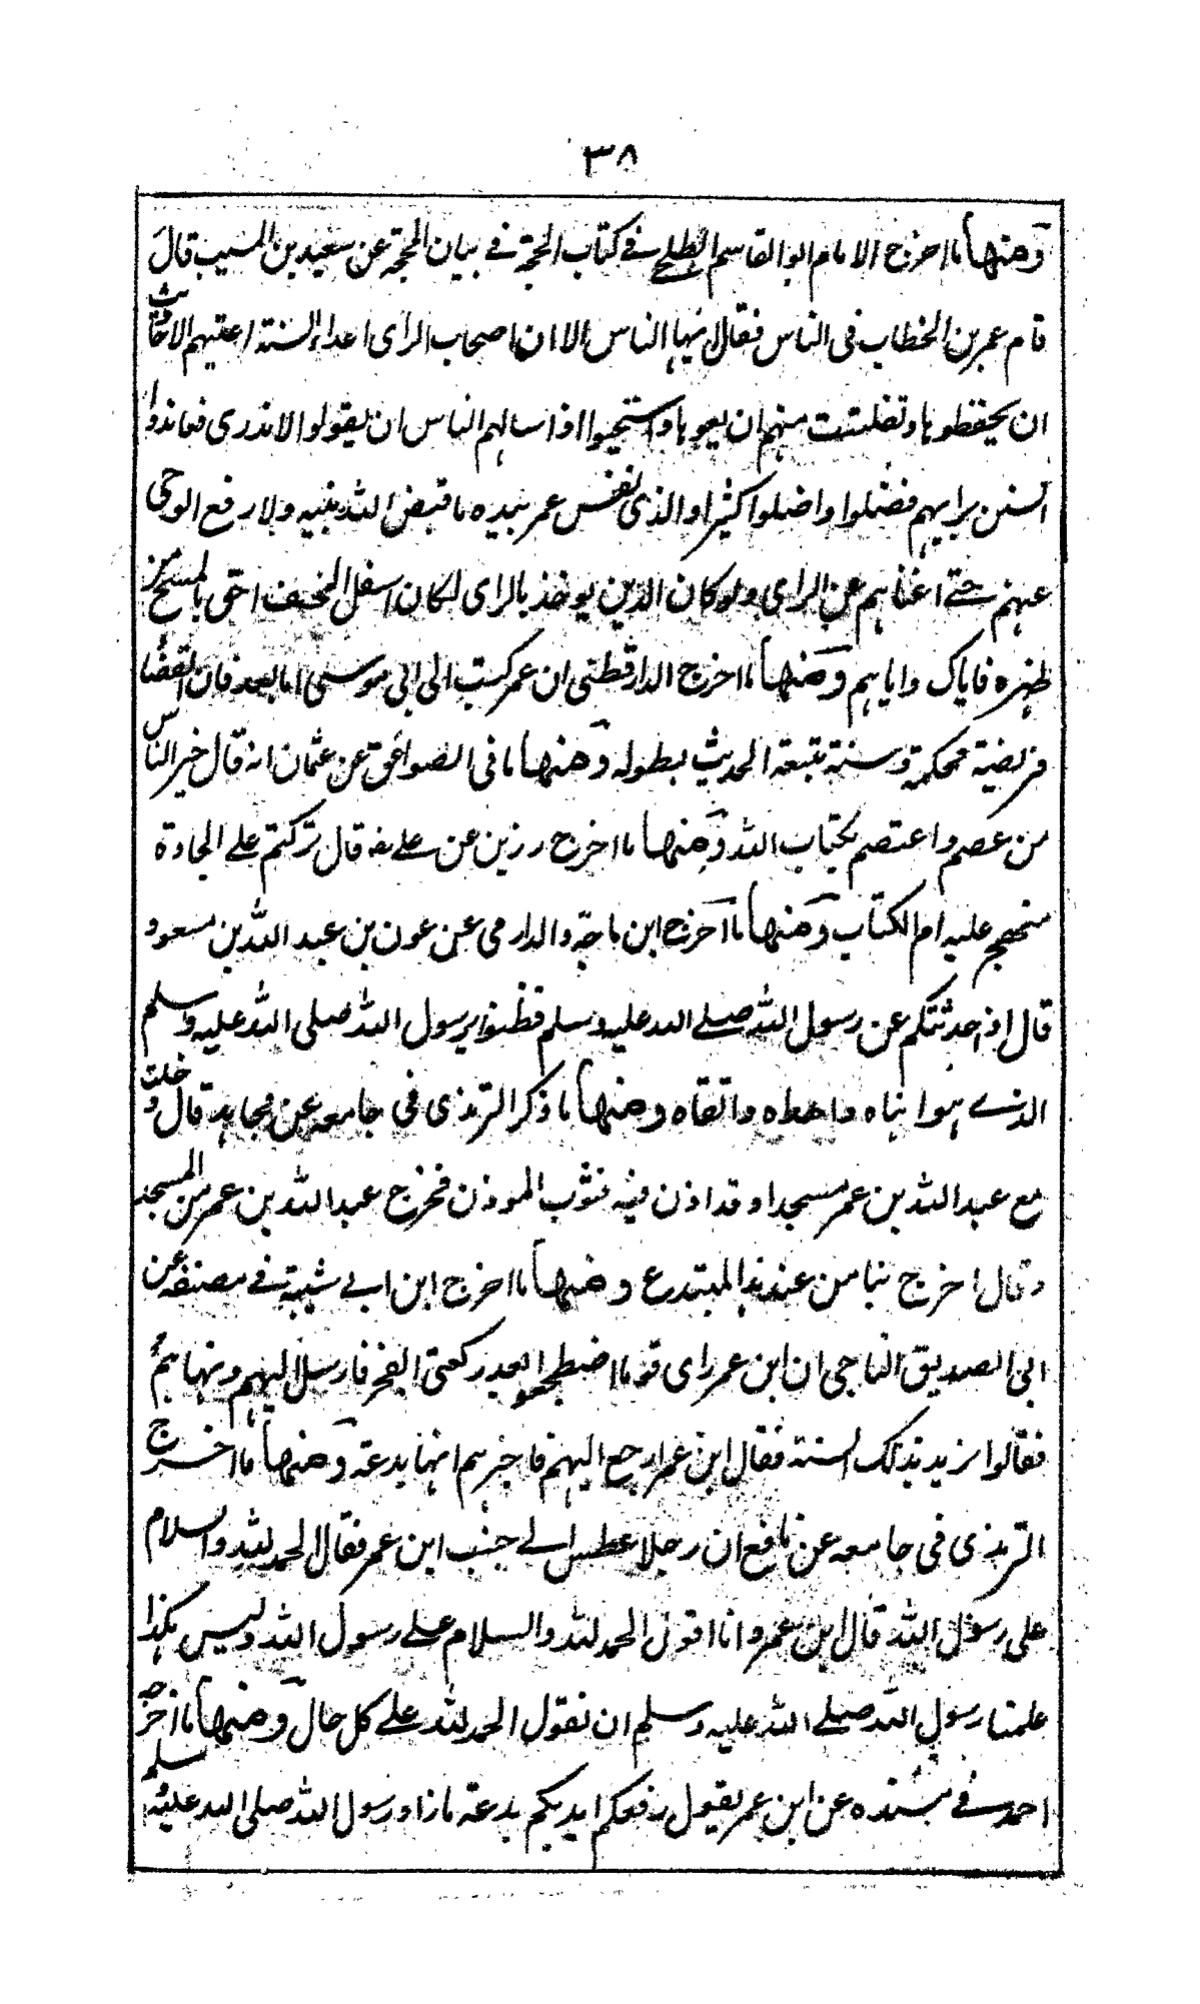 ٣٨
ومنها ما اخرج الامام ابو القاسم الطلحے فے كتاب الحجة فے بيان المحجة عن سعيد بن المسيب قال
قام عمر بن الخطاب فى الناس فقال ايها الناس الا ان اصحاب الراى اعداء السنة اعيتهم الاحاديث
ان يحفظوها وتفلتت منهم ان يعوها واستحيوا اذا سالهم الناس ان يقولوا لا ندرى فعاندوا
السنن برايهم فضلوا واضلوا كثيرا والذى نفس عمر بيده ما قبض الله نبيه ولا رفع الوحى
عنهم حتے اغناهم عن الراى ولو كان الدين يوخذ بالراى لكان اسفل الخف احق بالمسح من
ظهره فاياك واياهم ومنها ما اخرج الدارقطنى ان عمر كتب الى ابى موسى اما بعد فان القضا
فريضة محكمة وسنة متبعة الحديث بطوله ومنها ما فى الصواعق عن عثمان انه قال خير الناس
من عصم واعتصم بكتاب الله ومنها ما اخرج رزين عن علے رضہ قال تركتم علے الجادة
منهج عليه ام الكتاب ومنها ما اخرج ابن ماجة والدارمى عن عون بن عبد الله بن مسعود
قال اذ احدثتكم عن رسول الله صلے الله عليه وسلم فظنوا برسول الله صلى الله عليه وسلم
الذے هو اهناه واهداه واتقاه ومنها ما ذكر الترمذى فى جامعه عن مجاهد قال دخلت
مع عبد الله بن عمر مسجدا وقد اذن فيه فثوب الموذن فخرج عبد الله بن عمر من المسجد
وقال اخرج بنا من عند هذا المبتدع ومنها ما اخرج ابن ابے شيبة فے مصنفه عن
ابى الصديق الناجى ان ابن عمر راى قوما اضطجعوا بعد ركعتى الفجر فارسل اليهم ونهاهم
فقالوا نريد بذلك السنة فقال ابن عمر ارجع اليهم فاخبرهم انها بدعة ومنها ما اخرج
الترمذى فى جامعه عن نافع ان رجلا عطس الے جنب ابن عمر فقال الحمد لله والسلام
على رسول الله قال ابن عمر وانا اقول الحمد لله والسلام علے رسول الله وليس هكذا
علمنا رسول الله صلے الله عليه وسلم ان نقول الحمد لله علے كل حال ومنها ما اخرجه
احمد فے مسنده عن ابن عمر يقول رفعكم ايديكم بدعة ما زاد رسول الله صلى الله عليه وسلم